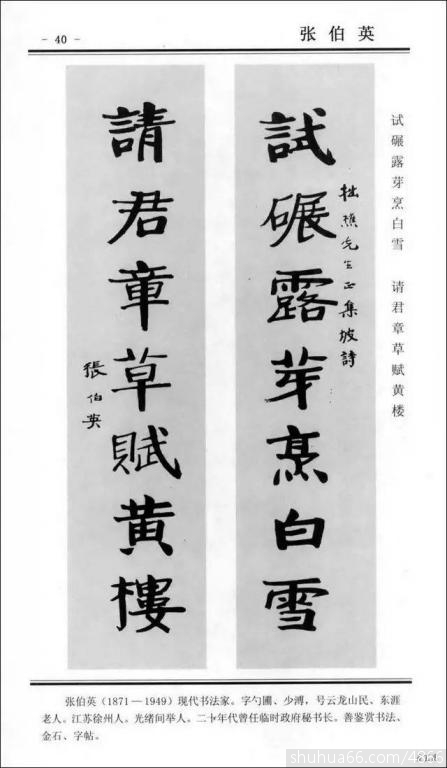 - 40 -
张伯英
试碾露芽烹白雪 请君章草赋黄楼
試碾露芽烹白雪
拙樵先生正集坡詩
請君章草賦黄樓
張伯英
张伯英(1871—1949)现代书法家。字勺圃、少溥,号云龙山民、东涯
老人。江苏徐州人。光绪间举人。二十年代曾任临时政府秘书长。善鉴赏书法、
金石、字帖。